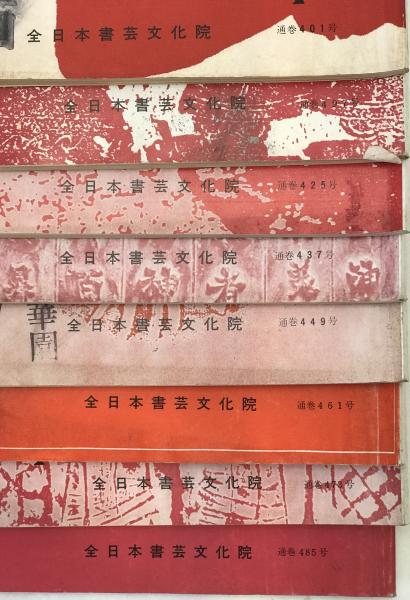 全日本書芸文化院 通巻401号
全日本書芸文化院
全日本書芸文化院 通巻425号
全日本書芸文化院 通巻437号
華
全日本書芸文化院 通巻449号
全日本書芸文化院 通巻461号
全日本書芸文化院 通巻473号
全日本書芸文化院 通巻485号